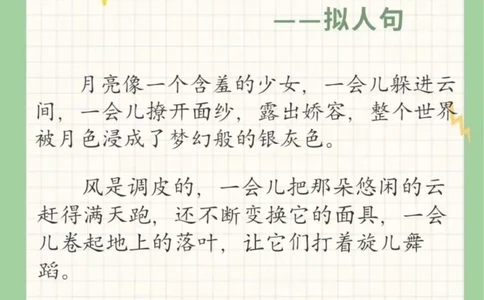 ——拟人句
月亮像一个含羞的少女，一会儿躲进云
间，一会儿撩开面纱，露出娇容，整个世界
被月色浸成了梦幻般的银灰色。
风是调皮的，一会儿把那朵悠闲的云
赶得满天跑，还不断变换它的面具，一会
儿卷起地上的落叶，让它们打着旋儿舞
蹈。